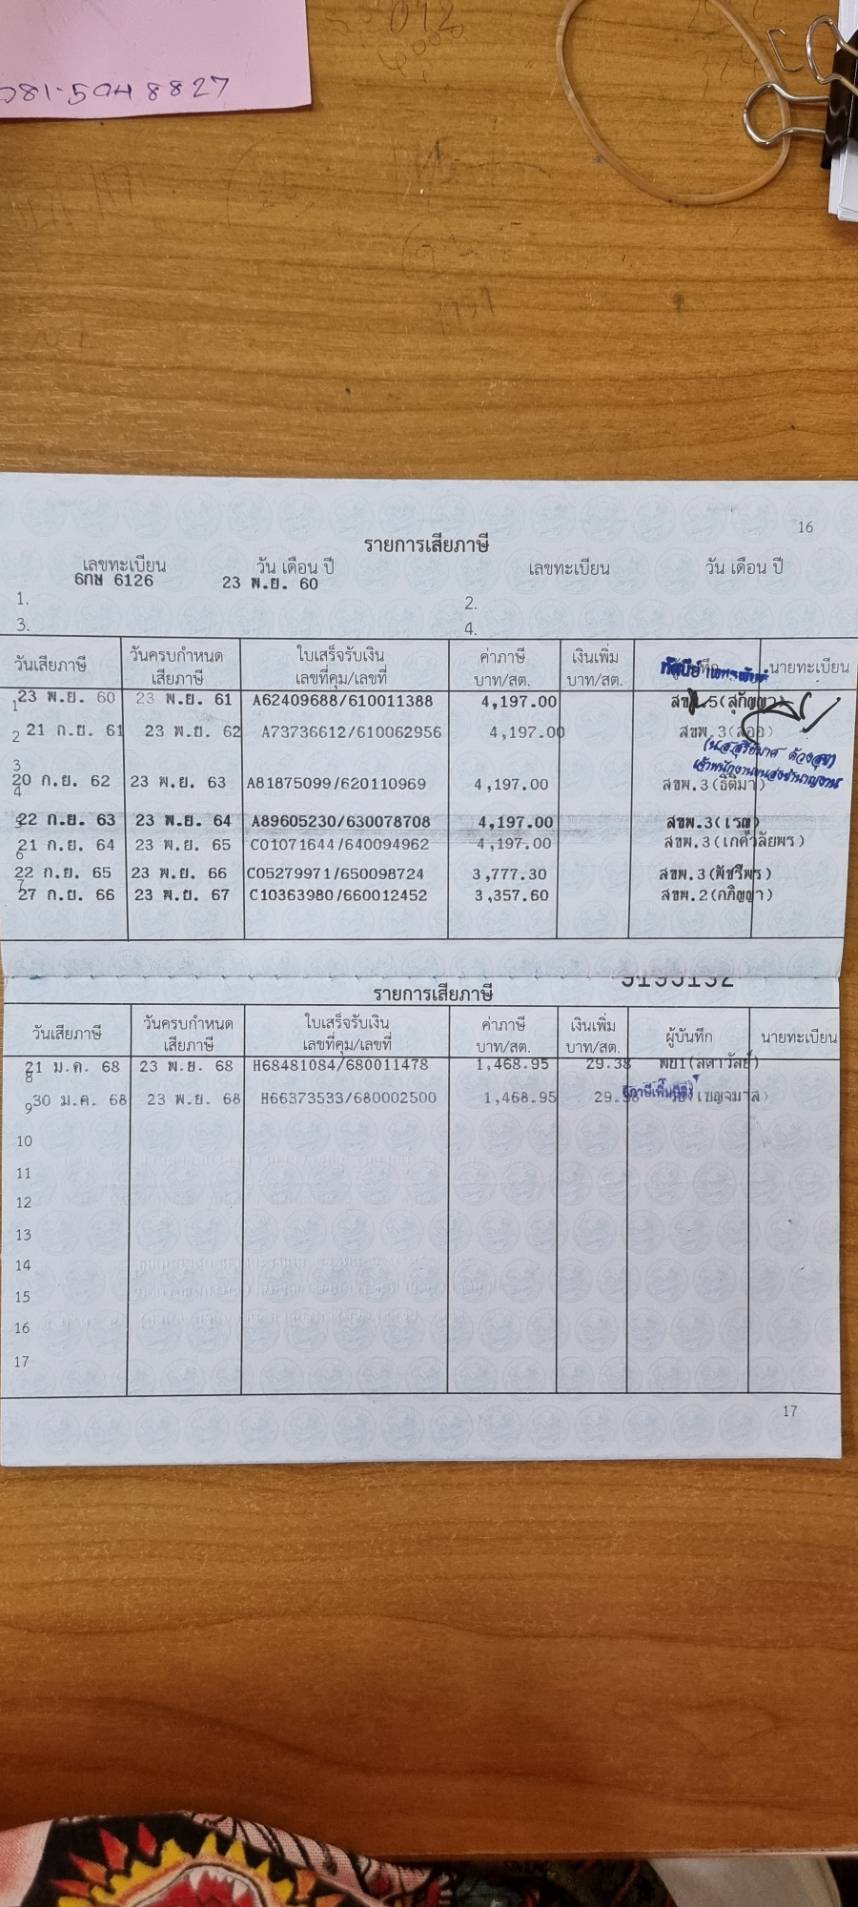 081-504 8827
16
รายการเสียภาษี
เลขทะเบียน วัน เดือน ปี เลขทะเบียน วัน เดือน ปี
6กษ 6126 23 พ.ย. 60
1. 2.
3. 4.
วันเสียภาษี วันครบกำหนดเสียภาษี ใบเสร็จรับเงิน เลขที่คุม/เลขที่ ค่าภาษี บาท/สต. เงินเพิ่ม บาท/สต. นายทะเบียน
1 23 พ.ย. 60 23 พ.ย. 61 A62409688/610011388 4,197.00 (สุกัญญา)
2 21 ก.ย. 61 23 พ.ย. 62 A73736612/610062956 4,197.00 สขพ.3
3
20 ก.ย. 62 23 พ.ย. 63 A81875099/620110969 4,197.00 สขพ.3(ธิติมา)
4
22 ก.ย. 63 23 พ.ย. 64 A89605230/630078708 4,197.00 สขพ.3(เรณู)
21 ก.ย. 64 23 พ.ย. 65 C01071644/640094962 4,197.00 สขพ.3(เกศวลัยพร)
6
22 ก.ย. 65 23 พ.ย. 66 C05279971/650098724 3,777.30 สขพ.3(พัชรีพร)
7
27 ก.ย. 66 23 พ.ย. 67 C10363980/660012452 3,357.60 สขพ.2(กภิญญา)
รายการเสียภาษี
วันเสียภาษี วันครบกำหนดเสียภาษี ใบเสร็จรับเงิน เลขที่คุม/เลขที่ ค่าภาษี บาท/สต. เงินเพิ่ม บาท/สต. ผู้บันทึก นายทะเบียน
21 ม.ค. 68 23 พ.ย. 68 H68481084/680011478 1,468.95 29.38
8
9 30 ม.ค. 68 23 พ.ย. 68 H66373533/680002500 1,468.95
10
11
12
13
14
15
16
17
17